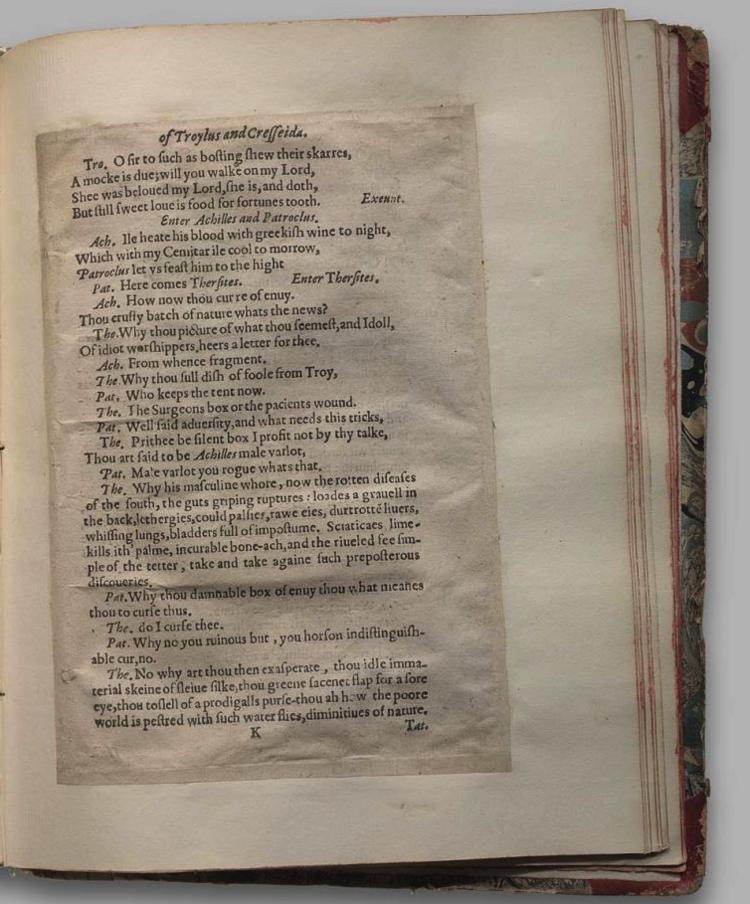 of Troylus and Creſſeida.
Tro. O ſir to ſuch as boſting ſhew their skarres,
A mocke is due; will you walke on my Lord,
Shee was beloued my Lord, ſhe is, and doth,
But ſtill ſweet loue is food for fortunes tooth. Exeunt.
Enter Achilles and Patroclus.
Ach. Ile heate his blood with greekiſh wine to night,
Which with my Cemitar ile cool to morrow,
Patroclus let vs feaſt him to the hight
Pat. Here comes Therſites. Enter Therſites.
Ach. How now thou curre of enuy.
Thou cruſty batch of nature whats the news?
The. Why thou picture of what thou ſeemeſt, and Idoll,
Of idiot worſhippers, heers a letter for thee.
Ach. From whence fragment.
The. Why thou full diſh of foole from Troy,
Pat. Who keeps the tent now.
The. The Surgeons box or the pacients wound.
Pat. Well ſaid aduerſity, and what needs this tricks,
The. Prithee be ſilent box I profit not by thy talke,
Thou art ſaid to be Achilles male varlot,
Pat. Male varlot you rogue whats that.
The. Why his maſculine whore, now the rotten diſeaſes
of the ſouth, the guts griping ruptures: loades a grauell in
the back, lethergies, could palſies, rawe eies, durtrottē liuers,
whiſſing lungs, bladders full of impoſtume. Sciaticaes lime-
kills ith' palme, incurable bone-ach, and the riueled fee ſim-
ple of the tetter, take and take againe ſuch prepoſterous
diſcoueries.
Pat. Why thou damnable box of enuy thou what meanes
thou to curſe thus.
The. do I curſe thee.
Pat. Why no you ruinous but, you horſon indiſtinguiſh-
able cur, no.
The. No why art thou then exaſperate, thou idle imma-
terial skeine of ſleiue ſilke, thou greene ſacenet flap for a ſore
eye, thou toſſell of a prodigalls purſe-thou ah how the poore
world is peſtred with ſuch water flies, diminitiues of nature.
K Tat.